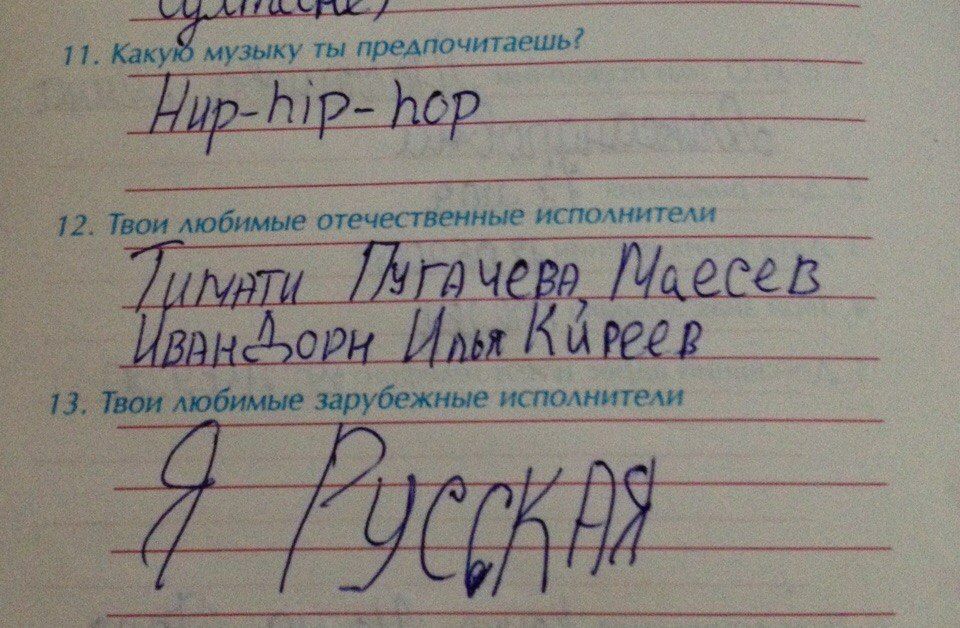 11. Какую музыку ты предпочитаешь?
Нир-hip-hop
12. Твои любимые отечественные исполнители
Тимати Пугачева, Маесев
Иван Дорн Илья Киреев
13. Твои любимые зарубежные исполнители
Я Русская